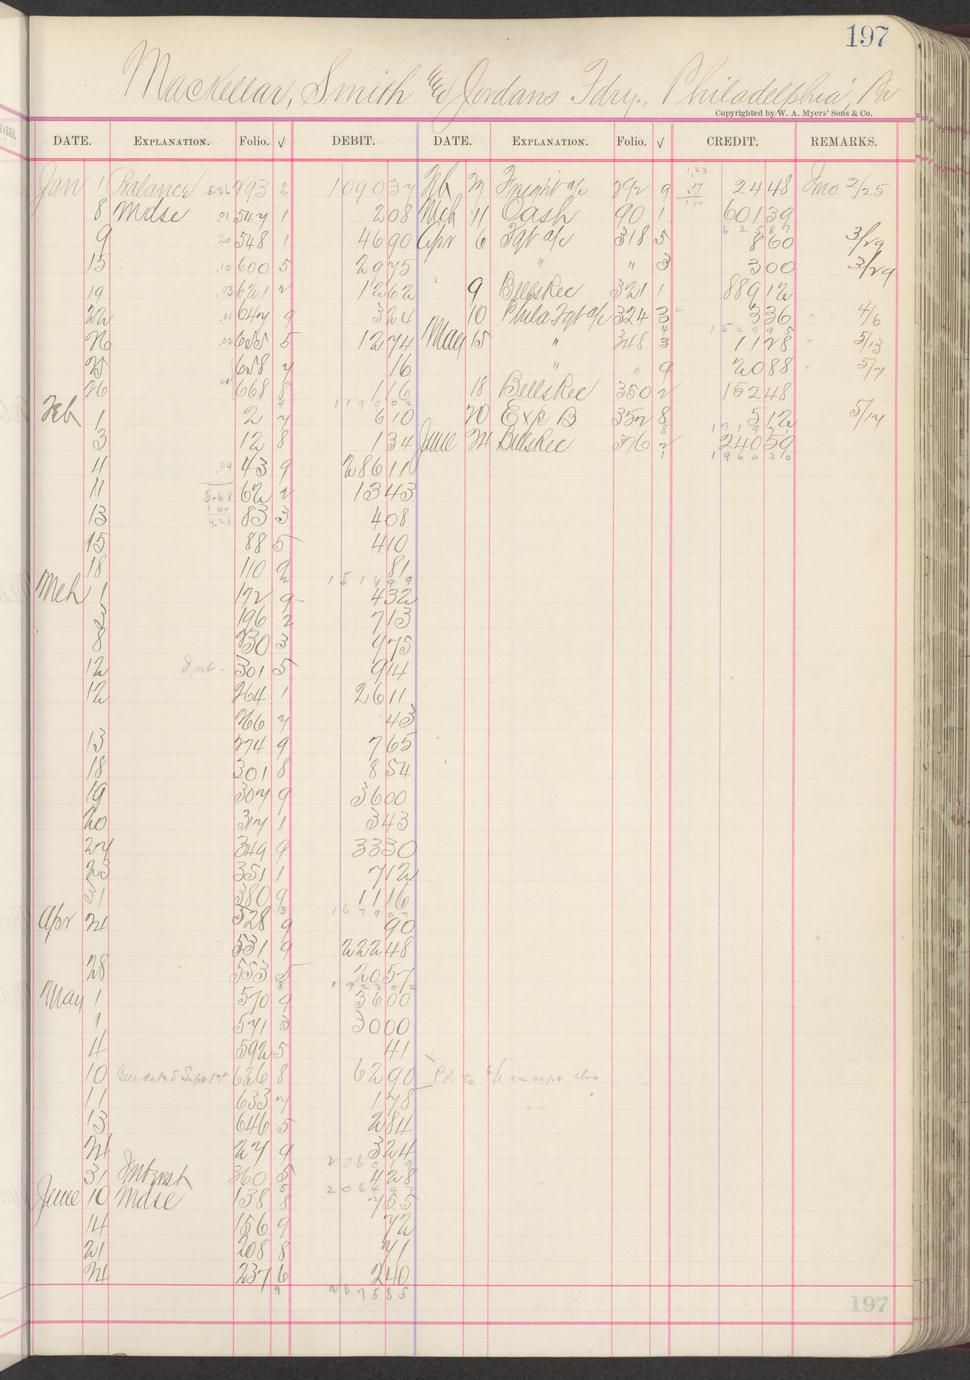 197
MacKellar, Smith & Jordans Fdry., Philadelphia, Pa
Copyrighted by W. A. Myers' Sons & Co.
DATE. EXPLANATION. Folio. √ DEBIT. DATE. EXPLANATION. Folio. √ CREDIT. REMARKS.
Jan 1 Balance 293 2 1090 37 Feb 27 Freight a/c 292 9 24 48 2/25
8 Mdse 547 1 2 08 Mch 11 Cash 90 1 601 39
9 548 1 46 90 Apr 6 Fgt a/c 318 5 8 60 3/29
15 600 5 29 75 " " 3 3 00 3/29
19 621 2 12 62 9 Bills Rec 321 1 889 12
22 647 9 3 24 10 Phila Fgt a/c 324 3 3 36 4/6
26 655 5 12 74 May 15 " 348 3 11 28 5/13
25 658 7 16 " " 9 20 88 5/7
26 668 8 1 16 18 Bills Rec 350 2 152 48
Feb 1 2 7 6 10 20 Exp B 352 8 5 12 5/14
3 12 8 1 34 June 24 Bills Rec 376 2 240 59
4 43 9 286 11
11 62 2 13 43
13 83 3 4 08
15 88 5 4 10
18 110 9 81
Mch 1 172 9 4 32
3 196 2 7 13
8 230 3 9 75
12 Int. 301 5 9 14
12 264 1 26 11
266 7 43
13 274 9 7 65
18 301 8 8 54
19 307 9 36 00
20 317 1 3 43
27 349 9 33 30
28 351 1 7 12
31 380 9 11 16
Apr 24 528 9 90
531 9 222 48
28 553 5 20 57
May 1 570 9 36 00
1 571 3 30 00
4 592 5 41
10 Bill dated Sept 1st 626 8 62 90 Pd to 6/1 except this
11 633 7 1 78
13 646 5 2 84
24 27 9 3 24
31 Interest 360 5 4 28
June 10 Mdse 138 8 7 55
14 156 9 72
21 208 8 71
24 237 6 2 40
207585
197